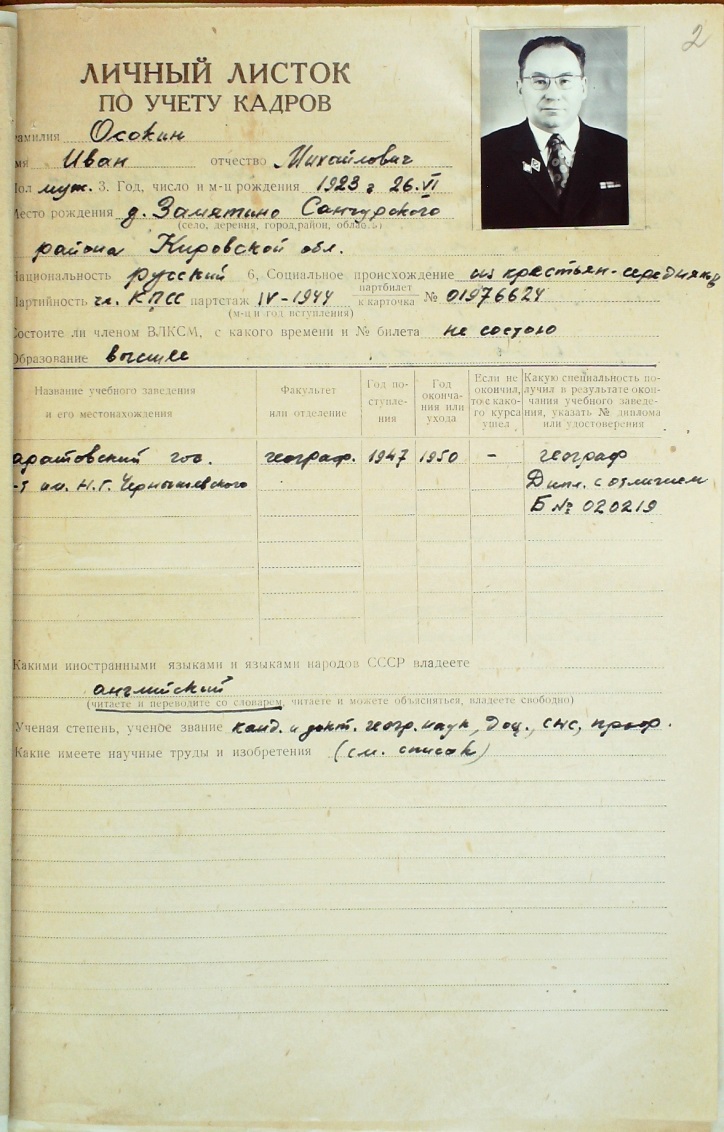 2
ЛИЧНЫЙ ЛИСТОК
ПО УЧЕТУ КАДРОВ
амилия Осокин
мя Иван отчество Михайлович
Пол муж. 3. Год, число и м-ц рождения 1923 г 26.VI
Место рождения д. Замятино Санчурского
(село, деревня, город, район, область)
района Кировской обл.
Национальность русский 6, Социальное происхождение из крестьян-середняков
Партийность чл. КПСС партстаж IV-1944 партбилет к карточка № 01976624
(м-ц и год вступления)
Состоите ли членом ВЛКСМ, с какого времени и № билета не состою
Образование высшее
Название учебного заведения и его местонахождения
Факультет или отделение
Год поступления
Год окончания или ухода
Если не окончил, то с какого курса ушел
Какую специальность получил в результате окончания учебного заведения, указать № диплома или удостоверения
аратовский гос. географ. 1947 1950 - географ
-т им. Н.Г. Чернышевского Дипл. с отличием
Б № 020219
Какими иностранными языками и языками народов СССР владеете
английский
(читаете и переводите со словарем, читаете и можете объясняться, владеете свободно)
Ученая степень, ученое звание канд. и докт. геогр. наук, доц., снс, проф.
Какие имеете научные труды и изобретения (см. список)